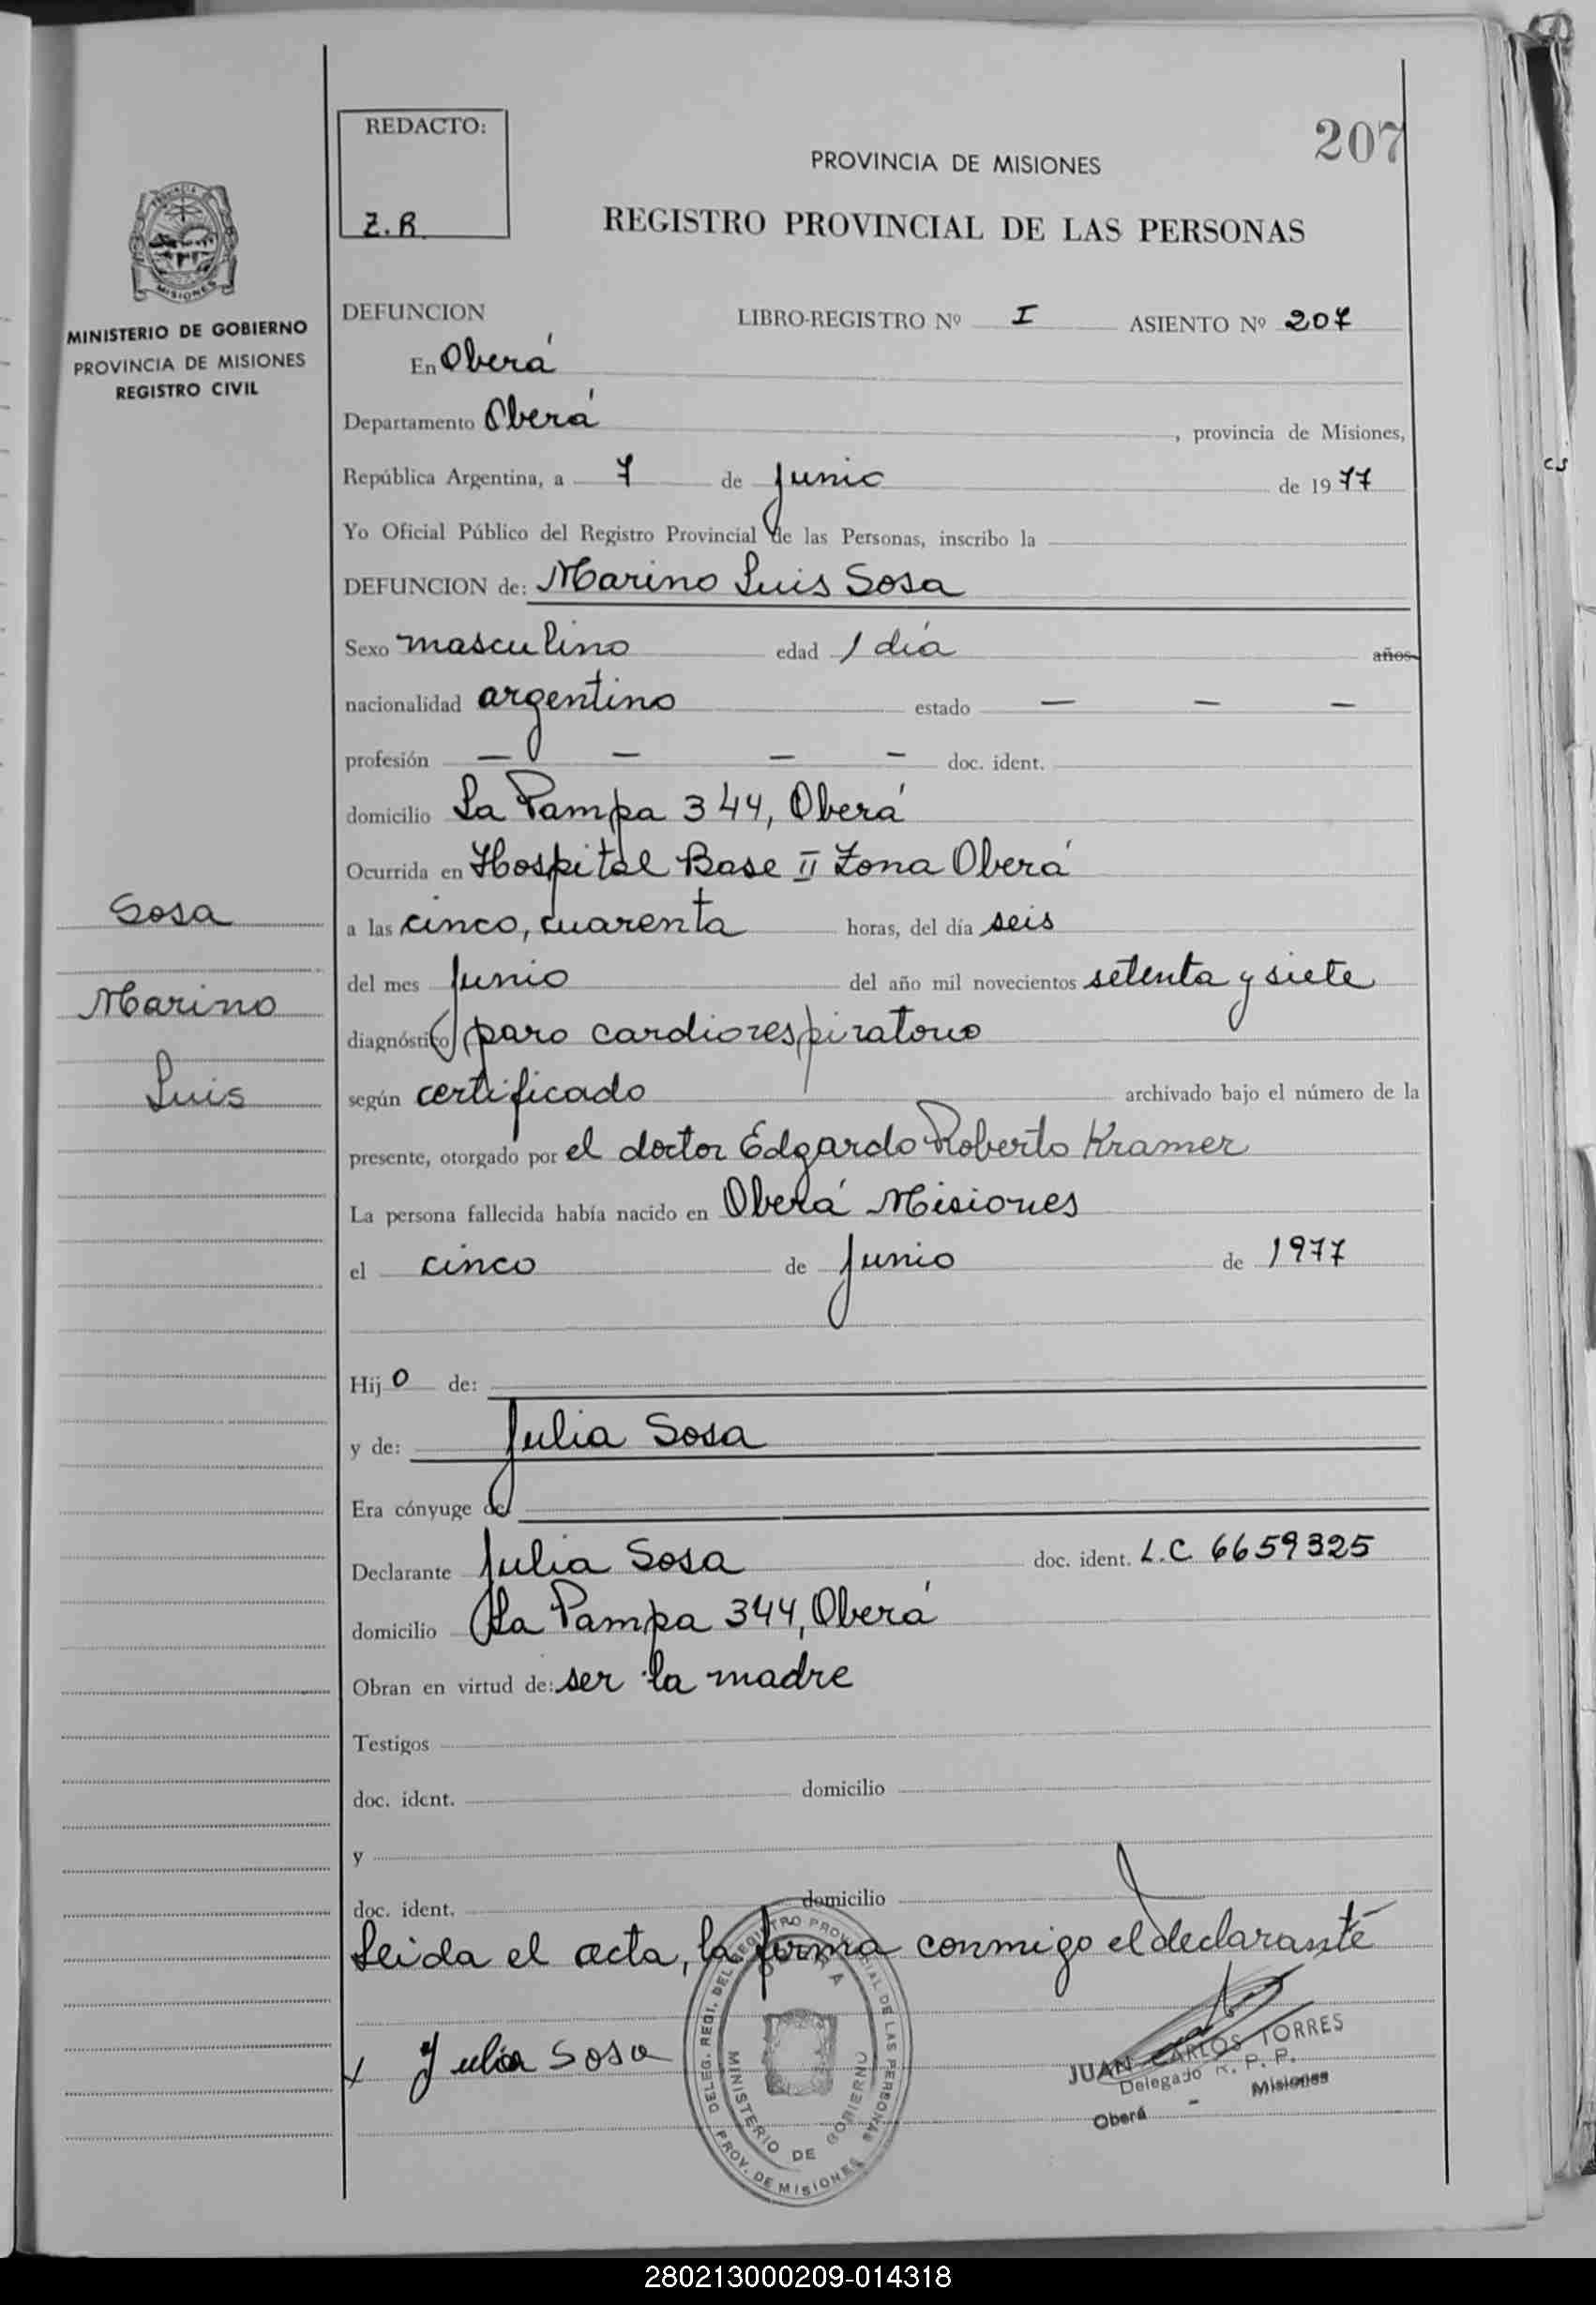 REDACTO:
Z.R.
207
PROVINCIA DE MISIONES
REGISTRO PROVINCIAL DE LAS PERSONAS
PROVINCIA
MISIONES
MINISTERIO DE GOBIERNO
PROVINCIA DE MISIONES
REGISTRO CIVIL
Sosa
Marino
Luis
DEFUNCION LIBRO-REGISTRO Nº I ASIENTO Nº 207
En Oberá
Departamento Oberá, provincia de Misiones,
República Argentina, a 7 de Junio de 1977
Yo Oficial Público del Registro Provincial de las Personas, inscribo la
DEFUNCION de: Marino Luis Sosa
Sexo masculino edad 1 día años
nacionalidad argentino estado — — —
profesión — — — — doc. ident.
domicilio La Pampa 344, Oberá
Ocurrida en Hospital Base II Zona Oberá
a las cinco, cuarenta horas, del día seis
del mes Junio del año mil novecientos setenta y siete
diagnóstico paro cardiorespiratorio
según certificado archivado bajo el número de la
presente, otorgado por el doctor Edgardo Roberto Kramer
La persona fallecida había nacido en Oberá Misiones
el cinco de Junio de 1977
Hijo de:
y de: Julia Sosa
Era cónyuge de
Declarante Julia Sosa doc. ident. L.C 6659325
domicilio La Pampa 344, Oberá
Obran en virtud de: ser la madre
Testigos
doc. ident. domicilio
y
doc. ident. domicilio
Leida el acta, la firma conmigo el declarante
x Julia Sosa
DELEG. REGI. DEL REGISTRO PROVINCIAL DE LAS PERSONAS
OBERA
MINISTERIO DE GOBIERNO
PROV. DE MISIONES
JUAN CARLOS TORRES
Delegado R. P. P.
Oberá - Misiones
cs
280213000209-014318